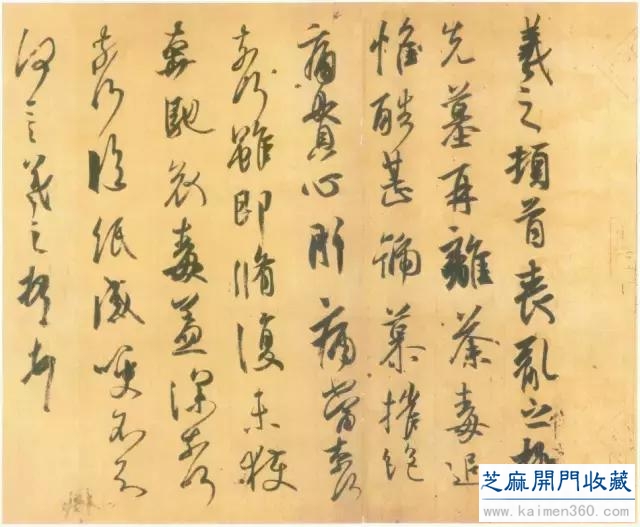 羲之頓首喪亂之極
先墓再離荼毒追
惟酷甚號慕摧絕
痛貫心肝痛當奈何
奈何雖即脩復未獲
奔馳哀毒益深奈何
奈何臨紙感哽不知
何言羲之頓首頓首
芝麻開門收藏
www.kaimen360.com